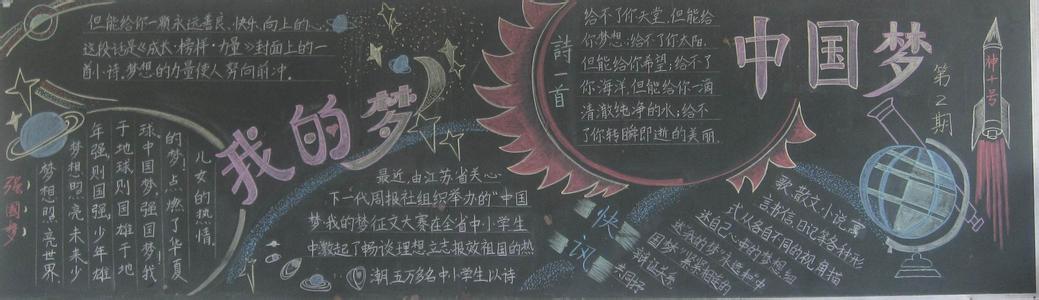 中国梦
我的梦
第2期
神十号
詩一首
给不了你天堂.但能给
你梦想;给不了你太阳.
但能给你希望;给不了
你海洋.但能给你一滴
清澈纯净的水;给不
了你转瞬即逝的美丽.
但能给你一颗永远善良.快乐.向上的心.
这段话是《成长·榜样·力量》封面上的一
首小诗.梦想的力量使人努向前冲.
快讯
最近,由江苏省关心
下一代周报社组织举办的"中国
梦我的梦征文大赛在全省中小学生
中激起了畅谈理想.立志报效祖国的热
潮.五万多名中小学生以诗
歌.散文.小说.寓
言.书信.日记等各种形
式从各自不同的视角描
述自己心中的梦想.
强国梦
儿女的热情.
的梦!点燃了华夏
球.中国梦.强国梦!我
于地球则国雄于地
年强则国强.少年雄
梦想照亮未来.少
梦想照亮世界.